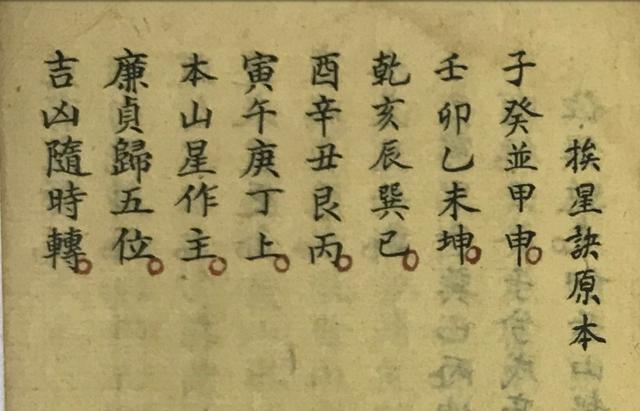 挨星訣原本
子癸並甲申。
壬卯乙未坤。
乾亥辰巽巳。
酉辛丑艮丙。
寅午庚丁上。
本山星作主。
廉貞歸五位。
吉凶隨時轉。